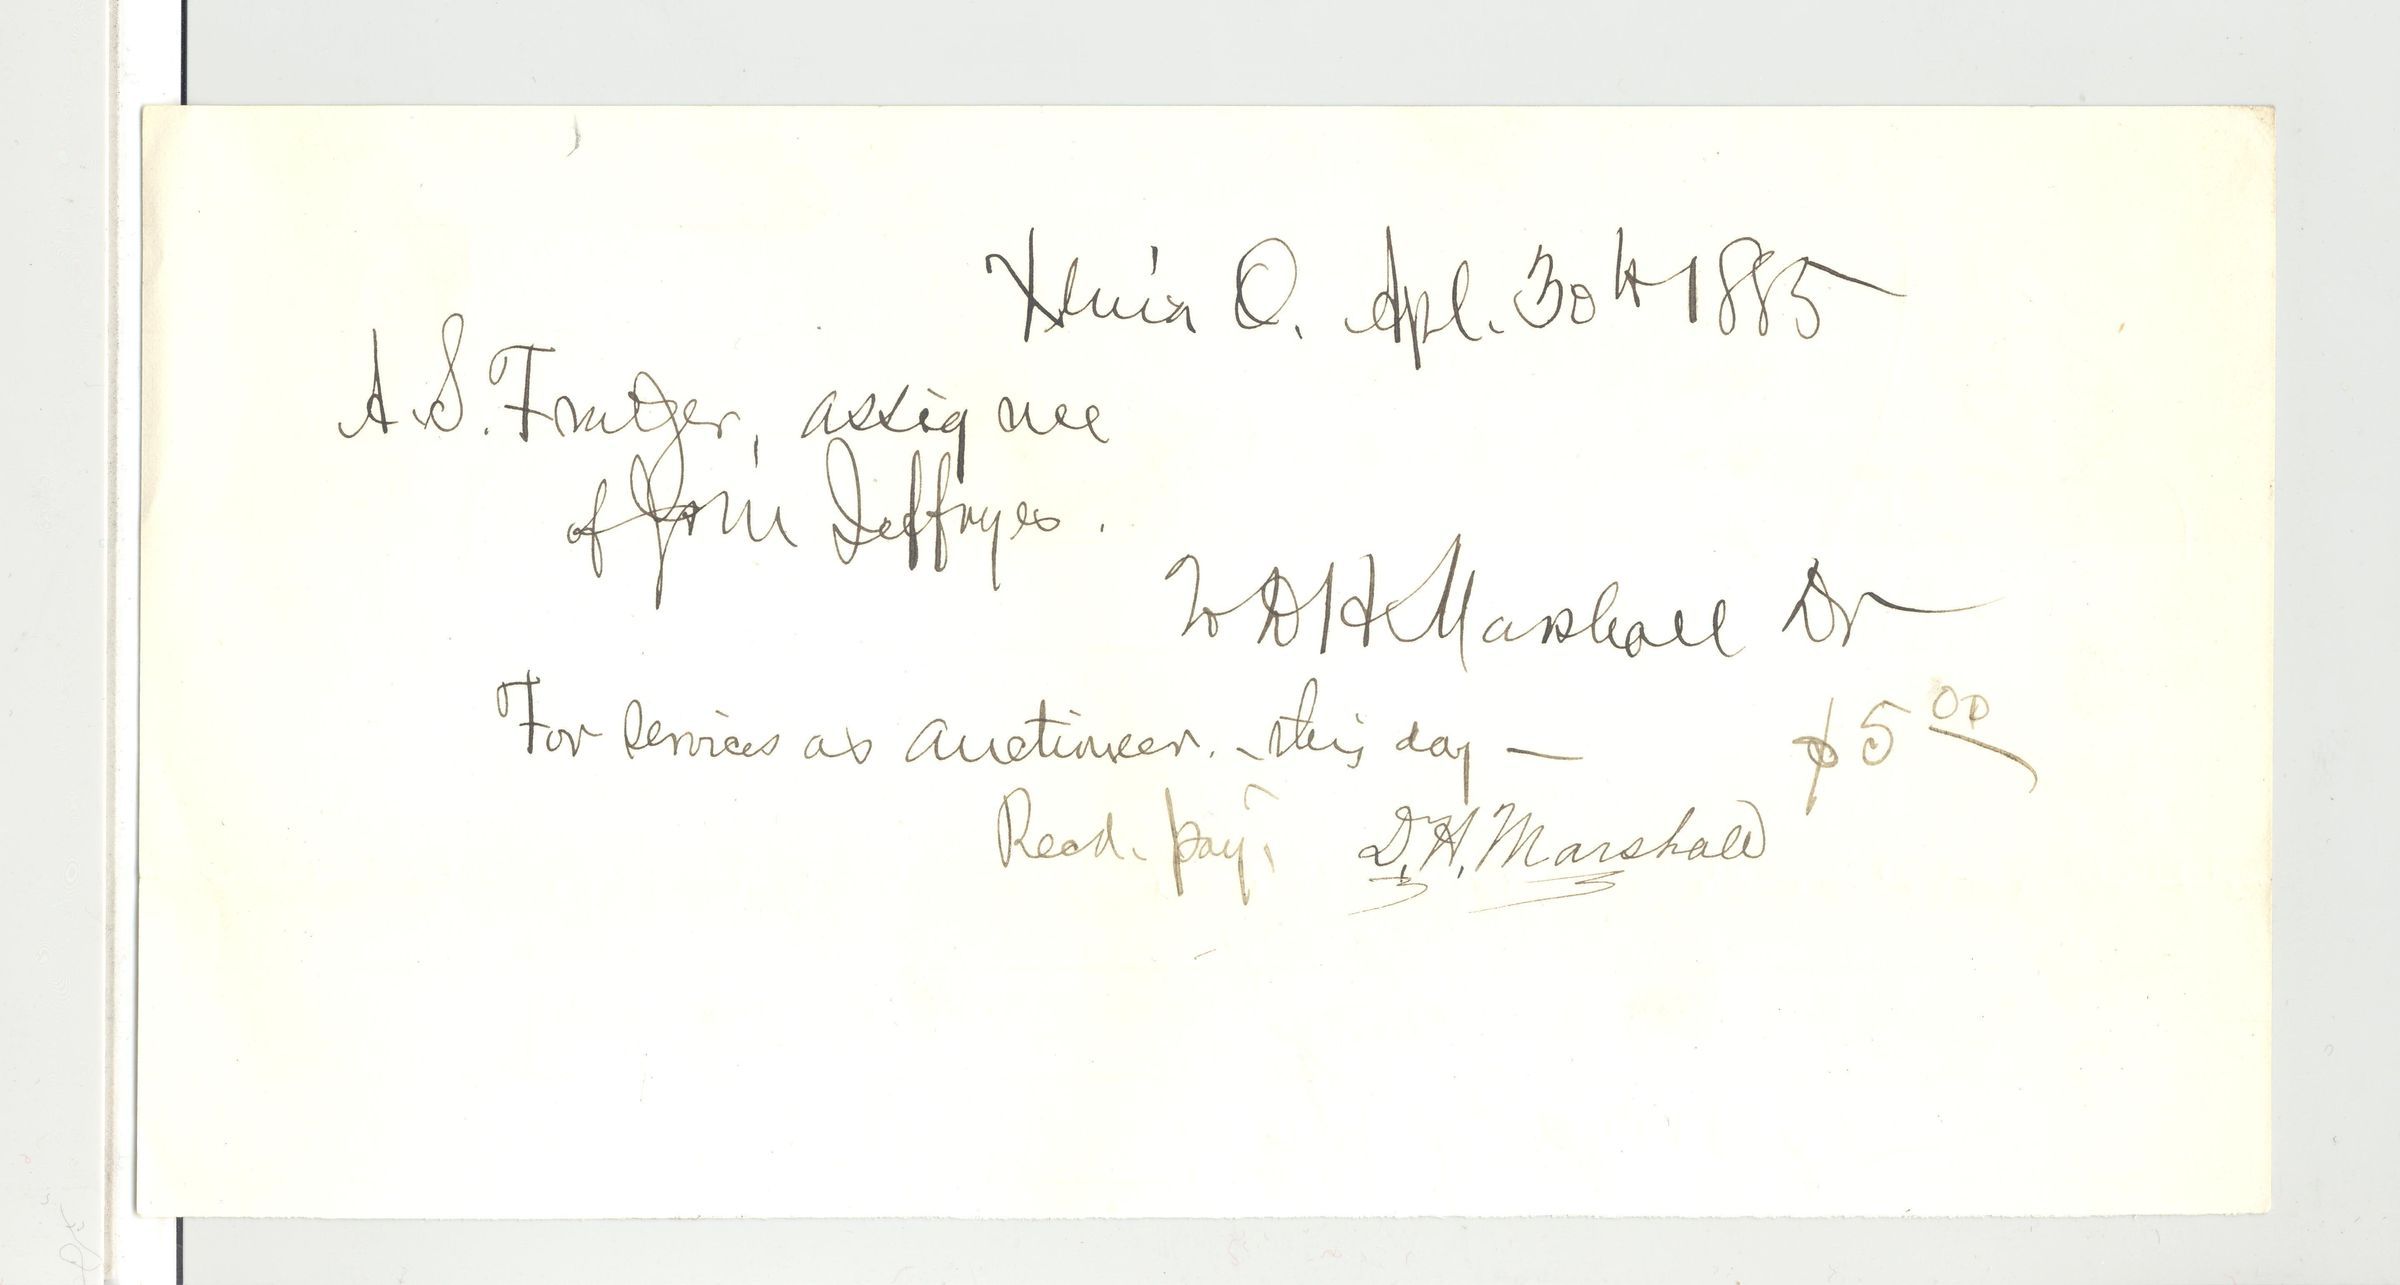 Xenia O. Apl. 30th 1885
A. S. Frazer, assignee
of John Jeffryes.
To D H Marshall Dr
For services as auctioneer. this day — $5 00
Recd. pay. D. H. Marshall